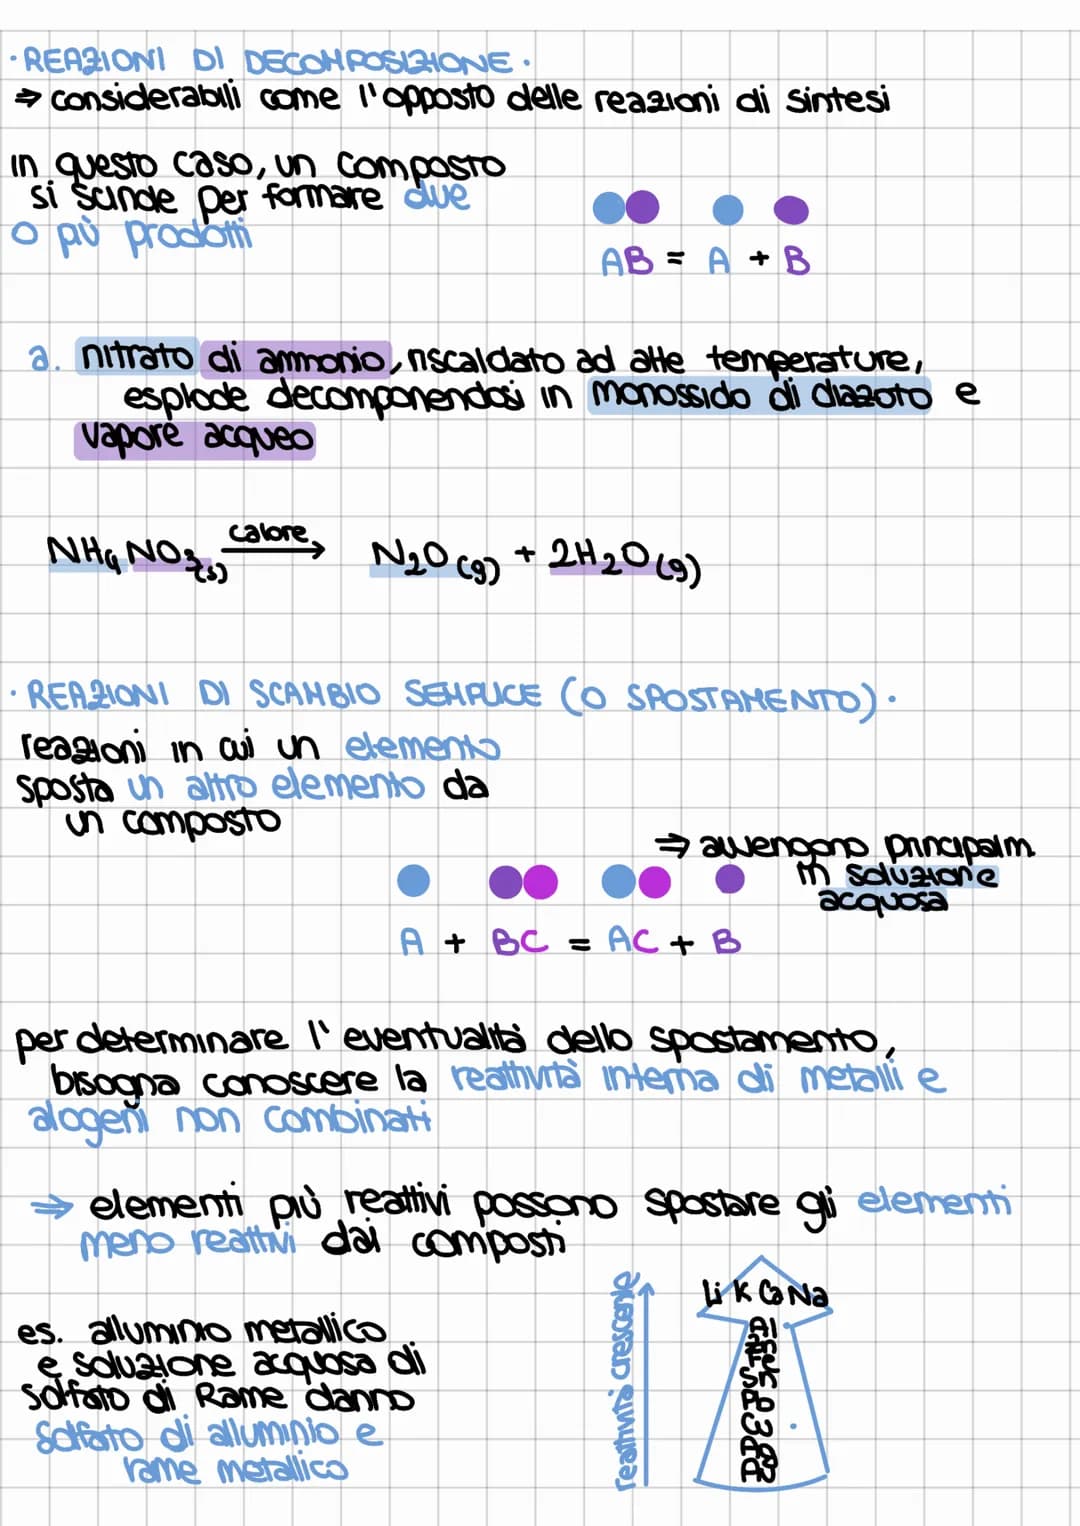 · REAZIONI DI DECOMPOSIZIONE ·
⇒ considerabili come l'opposto delle reazioni di sintesi
in questo caso, un composto
si scinde per formare due
o più prodotti
AB = A + B
a. nitrato di ammonio, riscaldato ad alte temperature,
esplode decomponendosi in monossido di diazoto e
vapore acqueo
calore
NH₄NO₃(s) → N₂O(g) + 2H₂O(g)
· REAZIONI DI SCAMBIO SEMPLICE (O SPOSTAMENTO) ·
reazioni in cui un elemento
sposta un altro elemento da
un composto
⇒ avvengono principalm.
in soluzione
acquosa
A + BC = AC + B
per determinare l'eventualità dello spostamento,
bisogna conoscere la reattività interna di metalli e
alogeni non combinati
⇒ elementi più reattivi possono spostare gli elementi
meno reattivi dai composti
es. alluminio metallico
e soluzione acquosa di
solfato di Rame danno
solfato di alluminio e
rame metallico
reattività crescente
Li K Ca Na